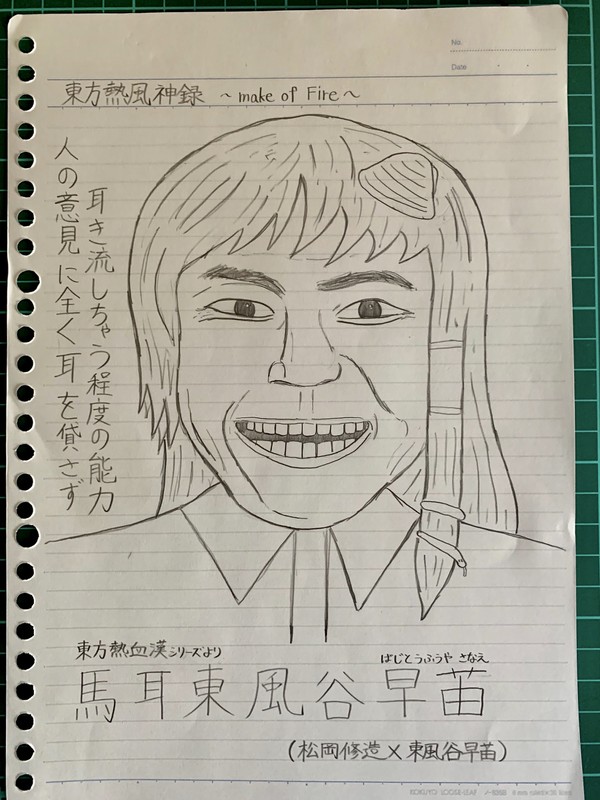 No.
Date
東方熱風神録 ～make of Fire～
人の意見に全く耳を貸さず
耳き流しちゃう程度の能力
東方熱血漢シリーズより
はじとうふうや さなえ
馬耳東風谷早苗
(松岡修造×東風谷早苗)